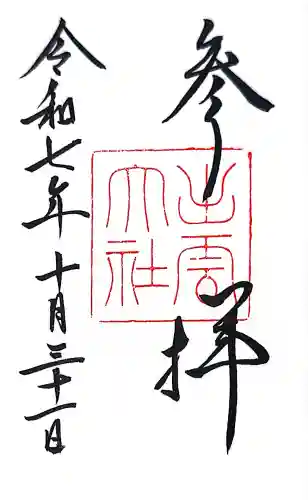 参拝
出雲
大社
令和七年十月三十一日